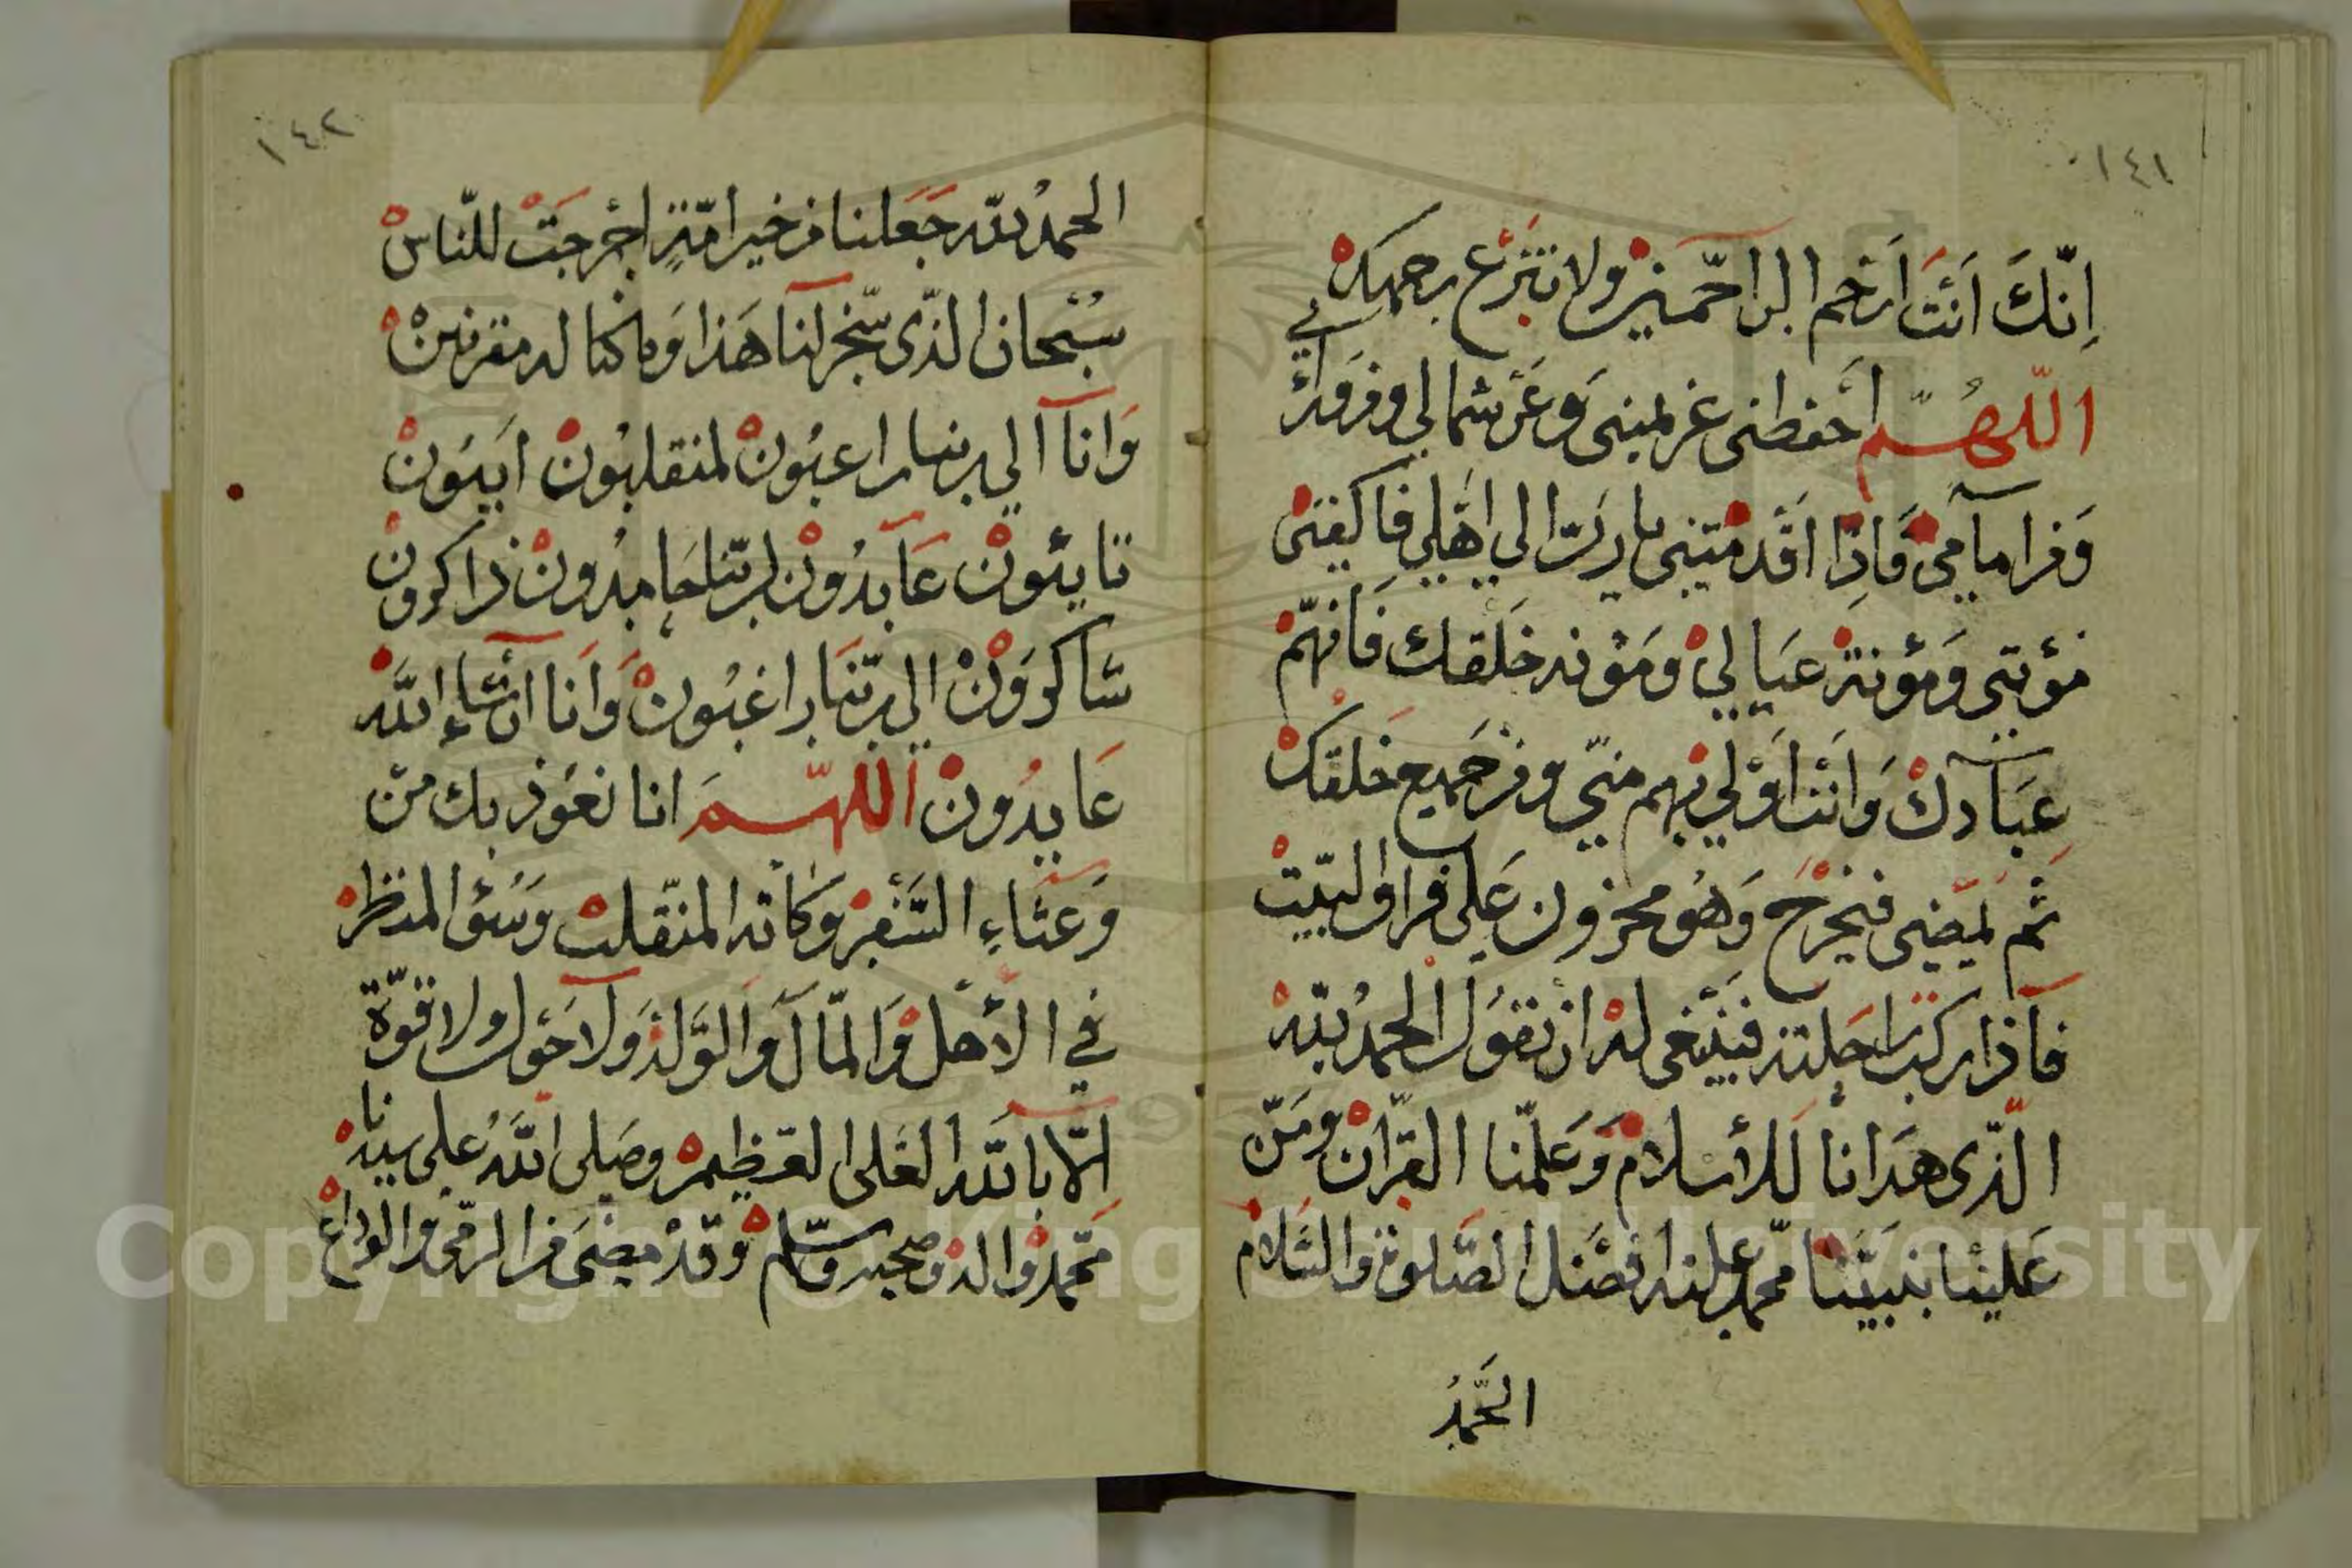 ١٤١
اِنّكَ اَنْتَ اَرْحم الراحّمين ولا تنزع برحمتك
في
اللّهُمّ احفظنى عن يمينى وَعَن شمالي ومن وَرائ
وَمن امآمى فَاذِا اقَدمتنى يارَبّ الي اهَلي فاكفنى
مؤنتى وَمؤنة عيَالي ومَؤنه خَلقك فَانّهم
عِبَآدك وَانت اَوْلي بهم منّي ومن جَميع خَلقك
ثمّ يمَضى فيخَرْج وَهُو محزون عَلى فراق البّيت
فآذا ركب راحَلته فيَنبغى له ان يقوُل الحمدُ للّه
الّذى هَدَانا لَلأسلام وَعَلمّنا القرّان ومَنّ
عَليْنا بنبيّنَا محّمد علَيه افضَل الصّلوة والسَّلام
الحَّمدُ
١٤٢
الحمدُ للّه جَعَلنا من خير امّةٍ اخْرجَتْ للنّاس
سُبْحان الذّى سّخر لنآ هَذا وَما كنا له مقرنين
وَانآ آلي ربنا راعبُون لمنقلبُون ايَبُون
تايئون عَآبدُون لربّنا حَامدُون ذاكرون
شاكروَنْ الي ربّنَا راغبُون وَانَا انشآءِ اللّه
عَابدُون اَللّهّمَ انا نعَوذ بك منّ
وَعَثآءِ السَّفر وكَابه المنّقلب وَسُؤ المنظر
في الأهل وَالمّال وَالوَّلد وَلآ حَول ولا قوّة
الآّ باللّه العَلى العَظيم وصَلى اللّهُ على سيدنا
محَمّد واله وصَحبه وسّلم وقدْ مضَى من الرّمى والوداع